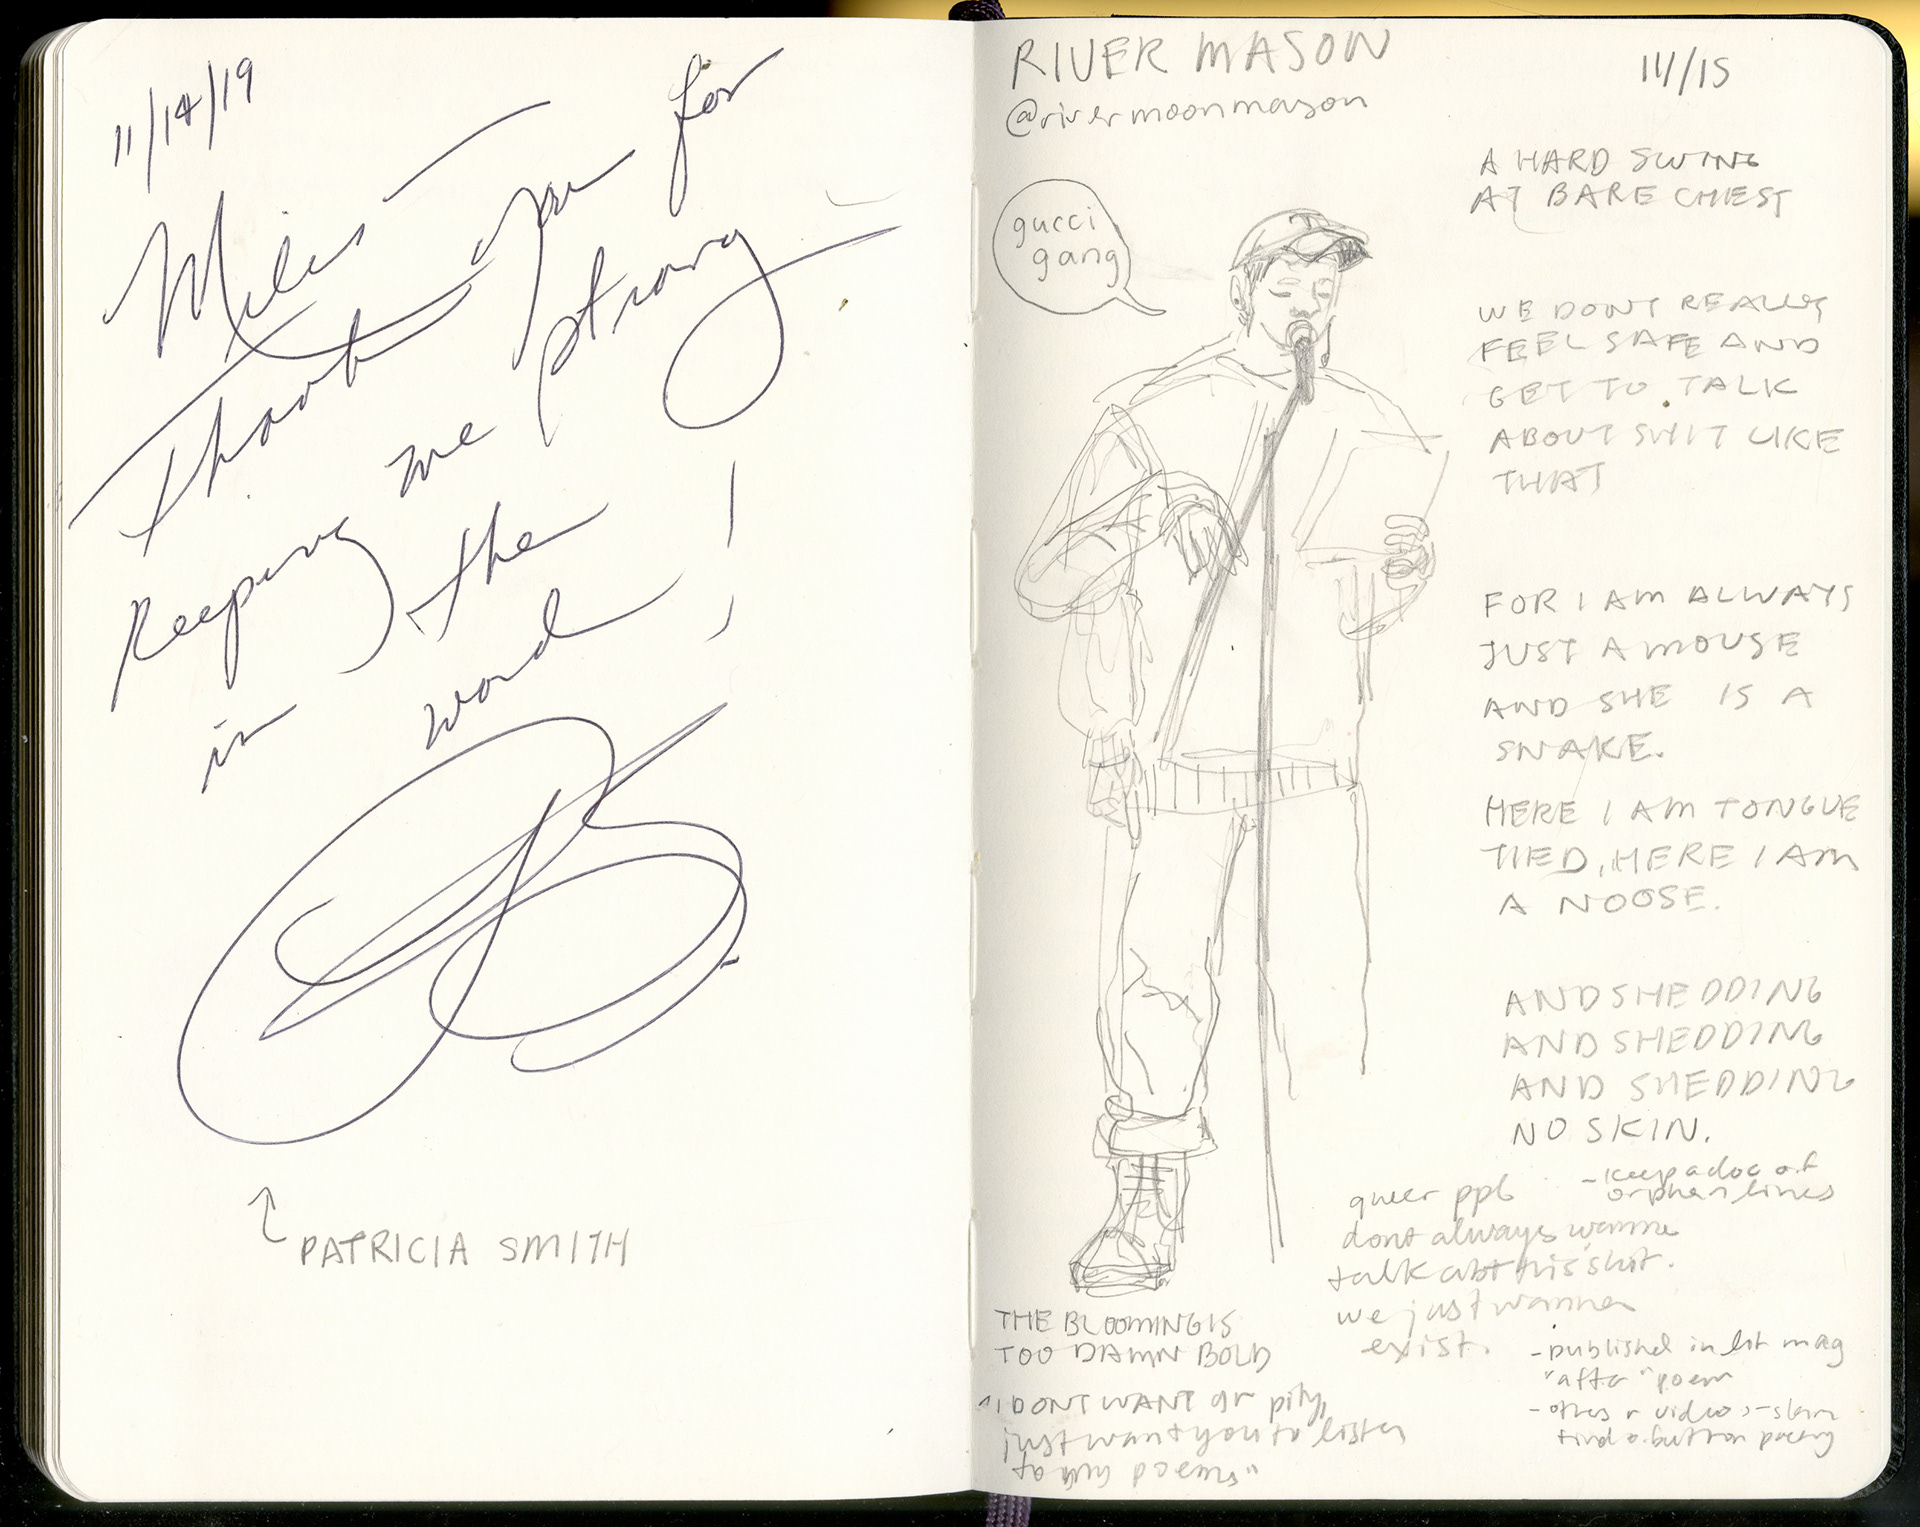 11/14/19
Miles —
Thank you for
keeping me strong
in the word!
PATRICIA SMITH
RIVER MASON
11/15
@rivermoonmason
gucci
gang
A HARD SWING
AT BARE CHEST
WE DONT REALLY
FEEL SAFE AND
GET TO TALK
ABOUT SHIT LIKE
THAT
FOR I AM ALWAYS
JUST A MOUSE
AND SHE IS A
SNAKE.
HERE I AM TONGUE
TIED, HERE I AM
A NOOSE.
AND SHEDDING
AND SHEDDING
AND SHEDDING
NO SKIN.
- keep a doc of
orphan lines
queer ppl
dont always wanna
talk abt this shit.
we just wanna
exist.
THE BLOOMING IS
TOO DAMN BOLD
"I DONT WANT ur pity,
just want you to listen
to my poems"
- published in lit mag
"after" poem
- others r videos - slam
find a button poetry